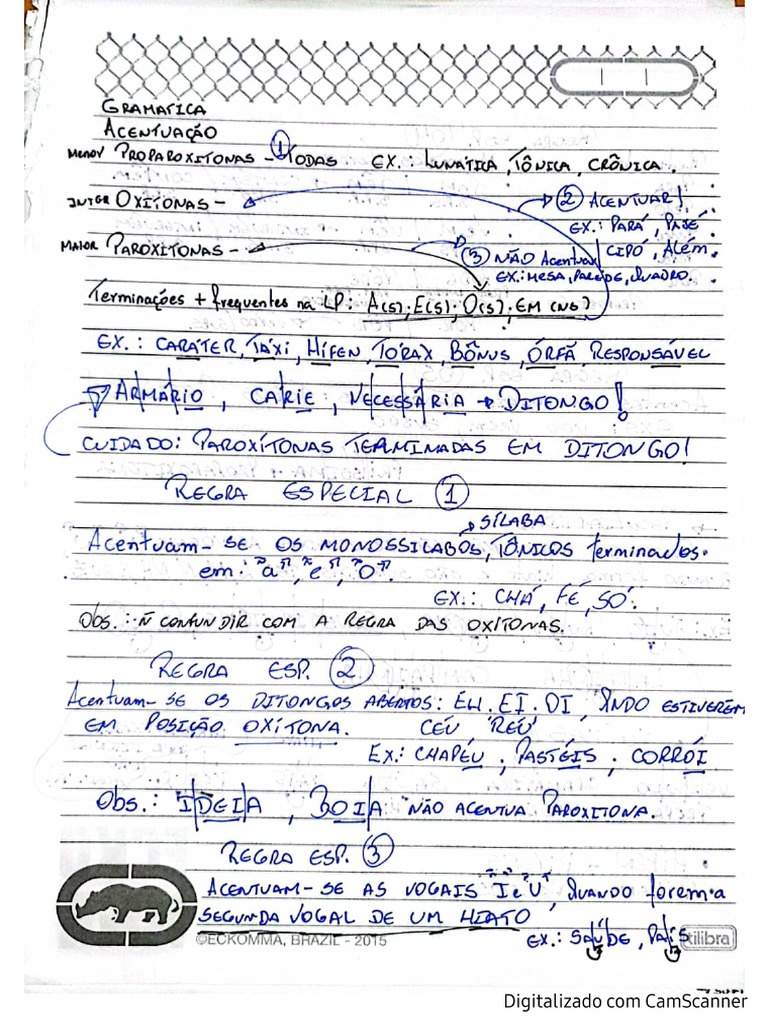 GRAMATICA
ACENTUAÇÃO
MENOV PROPAROXITONAS - ① TODAS EX.: LUNÁTICA, TÔNICA, CRÔNICA.
INTER OXÍTONAS - ② ACENTUAR!
EX.: PARÁ, PAJÉ
CIPÓ, ALÉM.
MAIOR PAROXITONAS - ③ NÃO Acentuar
EX.: MESA, PAREDE, QUADRO.
Terminações + frequentes na LP: A(S), E(S), O(S), EM (NS)
EX.: CARÁTER, TÁXI, HÍFEN, TÓRAX, BÔNUS, ÓRFÃ RESPONSÁVEL
AR|MÁ|RIO, CÁ|RIE, NE|CES|SÁ|RIA → DITONGO!
CUIDADO: PAROXÍTONAS TERMINADAS EM DITONGO!
REGRA ESPECIAL ①
SÍLABA
Acentuam-SE OS MONOSSILABOS, TÔNICOS terminados
em: "a", "e", "o".
EX.: CHÁ, FÉ, SÓ.
Obs.: Ñ CONFUNDIR COM A REGRA DAS OXÍTONAS.
REGRA ESP. ②
Acentuam-SE OS DITONGOS ABERTOS: EU, EI, OI, QNDO ESTIVEREM
EM POSIÇÃO OXÍTONA. CÉU RÉU
EX.: CHAPÉU, PASTÉIS, CORRÓI
Obs.: "I|DEI|A, BOI|A" NÃO ACENTUA PAROXITONA.
REGRA ESP. ③
ACENTUAM-SE AS VOGAIS "I e U", QUANDO forem a
SEGUNDA VOGAL DE UM HIATO
©ECKOMMA, BRAZIL - 2015
EX.: SAÚDE, PAÍS
tilibra
Digitalizado com CamScanner